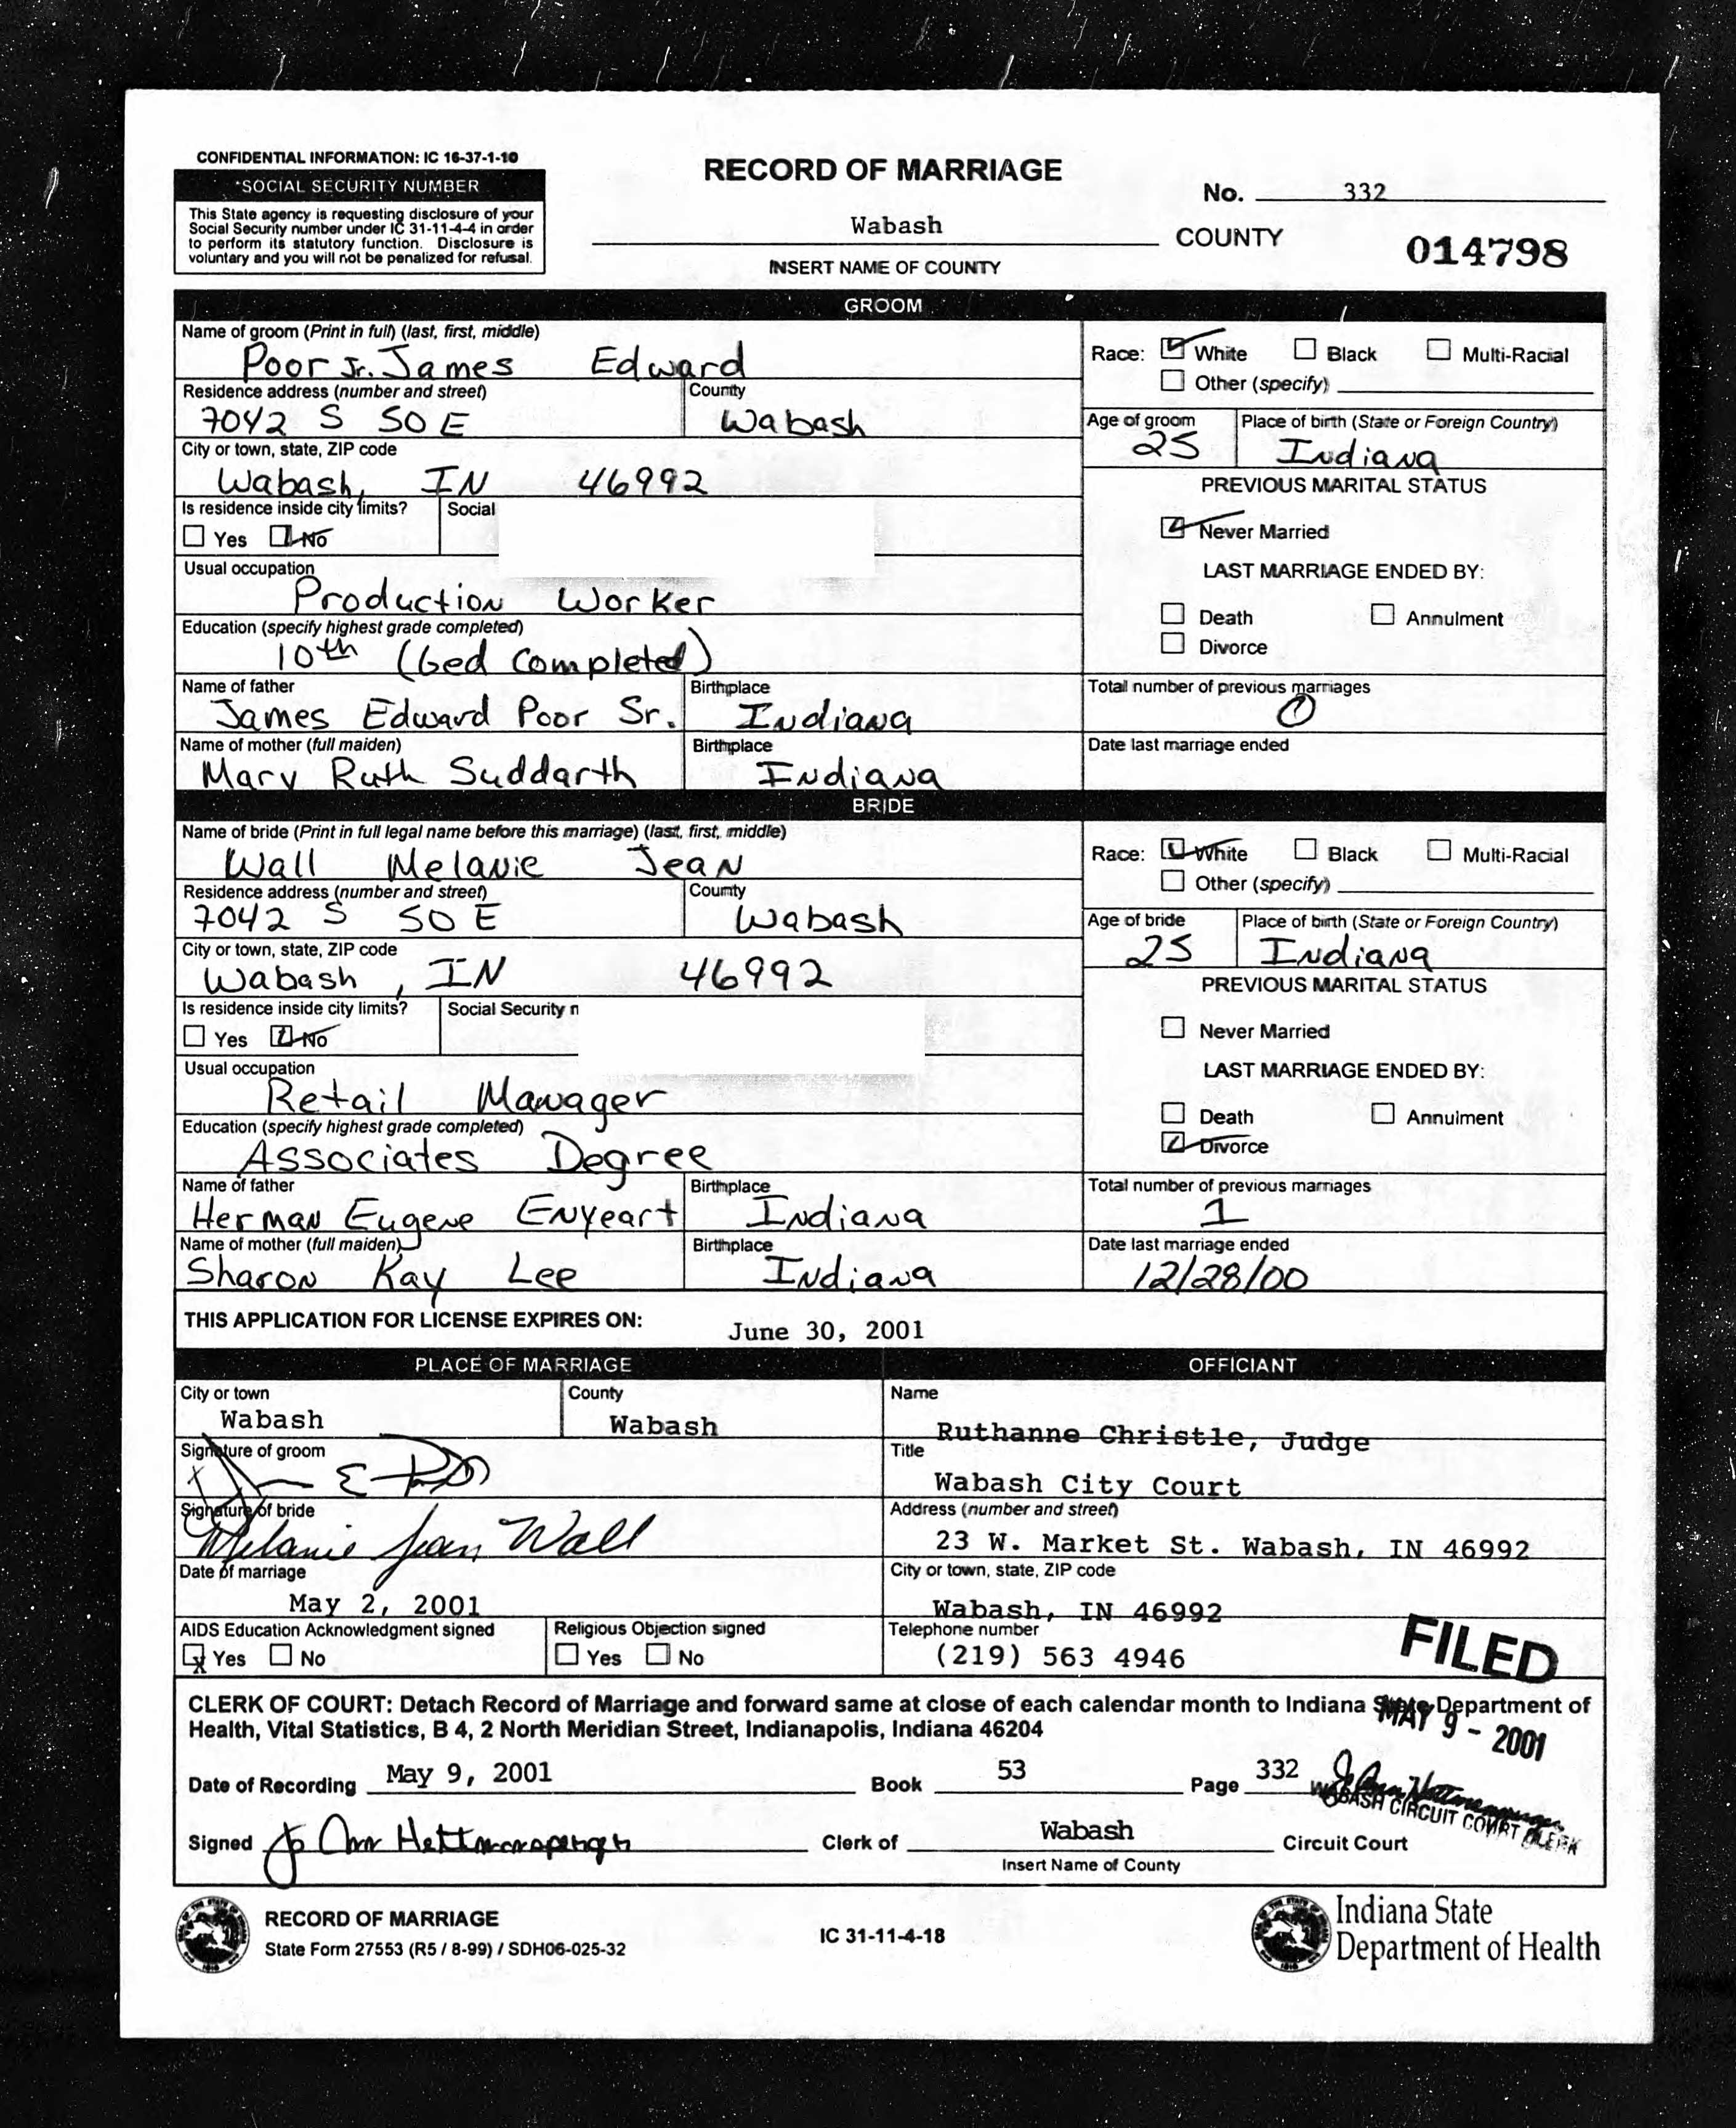 CONFIDENTIAL INFORMATION: IC 16-37-1-10
*SOCIAL SECURITY NUMBER
This State agency is requesting disclosure of your
Social Security number under IC 31-11-4-4 in order
to perform its statutory function. Disclosure is
voluntary and you will not be penalized for refusal.
RECORD OF MARRIAGE
No. 332
Wabash COUNTY
014798
INSERT NAME OF COUNTY
GROOM
Name of groom (Print in full) (last, first, middle)
Poor Jr. James Edward
Race: White Black Multi-Racial
Other (specify)
Residence address (number and street) County
7042 S 50 E Wabash
Age of groom Place of birth (State or Foreign Country)
25 Indiana
City or town, state, ZIP code
Wabash, IN 46992
PREVIOUS MARITAL STATUS
Is residence inside city limits? Social
Yes No
Never Married
Usual occupation
Production Worker
LAST MARRIAGE ENDED BY:
Death Annulment
Divorce
Education (specify highest grade completed)
10th (Ged Completed)
Name of father Birthplace
James Edward Poor Sr. Indiana
Total number of previous marriages
0
Name of mother (full maiden) Birthplace
Mary Ruth Suddarth Indiana
Date last marriage ended
BRIDE
Name of bride (Print in full legal name before this marriage) (last, first, middle)
Wall Melanie Jean
Race: White Black Multi-Racial
Other (specify)
Residence address (number and street) County
7042 S 50 E Wabash
Age of bride Place of birth (State or Foreign Country)
25 Indiana
City or town, state, ZIP code
Wabash, IN 46992
PREVIOUS MARITAL STATUS
Is residence inside city limits? Social Security n
Yes No
Never Married
Usual occupation
Retail Manager
LAST MARRIAGE ENDED BY:
Death Annulment
Divorce
Education (specify highest grade completed)
Associates Degree
Name of father Birthplace
Herman Eugene Enyeart Indiana
Total number of previous marriages
1
Name of mother (full maiden) Birthplace
Sharon Kay Lee Indiana
Date last marriage ended
12/28/00
THIS APPLICATION FOR LICENSE EXPIRES ON: June 30, 2001
PLACE OF MARRIAGE OFFICIANT
City or town County
Wabash Wabash
Name
Ruthanne Christle, Judge
Signature of groom
X
Title
Wabash City Court
Signature of bride
Melanie Jean Wall
Address (number and street)
23 W. Market St. Wabash, IN 46992
Date of marriage
May 2, 2001
City or town, state, ZIP code
Wabash, IN 46992
AIDS Education Acknowledgment signed Religious Objection signed
X Yes No Yes No
Telephone number
(219) 563 4946
FILED
MAY 9 - 2001
WABASH CIRCUIT COURT CLERK
CLERK OF COURT: Detach Record of Marriage and forward same at close of each calendar month to Indiana State Department of
Health, Vital Statistics, B 4, 2 North Meridian Street, Indianapolis, Indiana 46204
Date of Recording May 9, 2001 Book 53 Page 332
Signed Jo Ann Clerk of Wabash Circuit Court
Insert Name of County
RECORD OF MARRIAGE
State Form 27553 (R5 / 8-99) / SDH06-025-32
IC 31-11-4-18
Indiana State
Department of Health